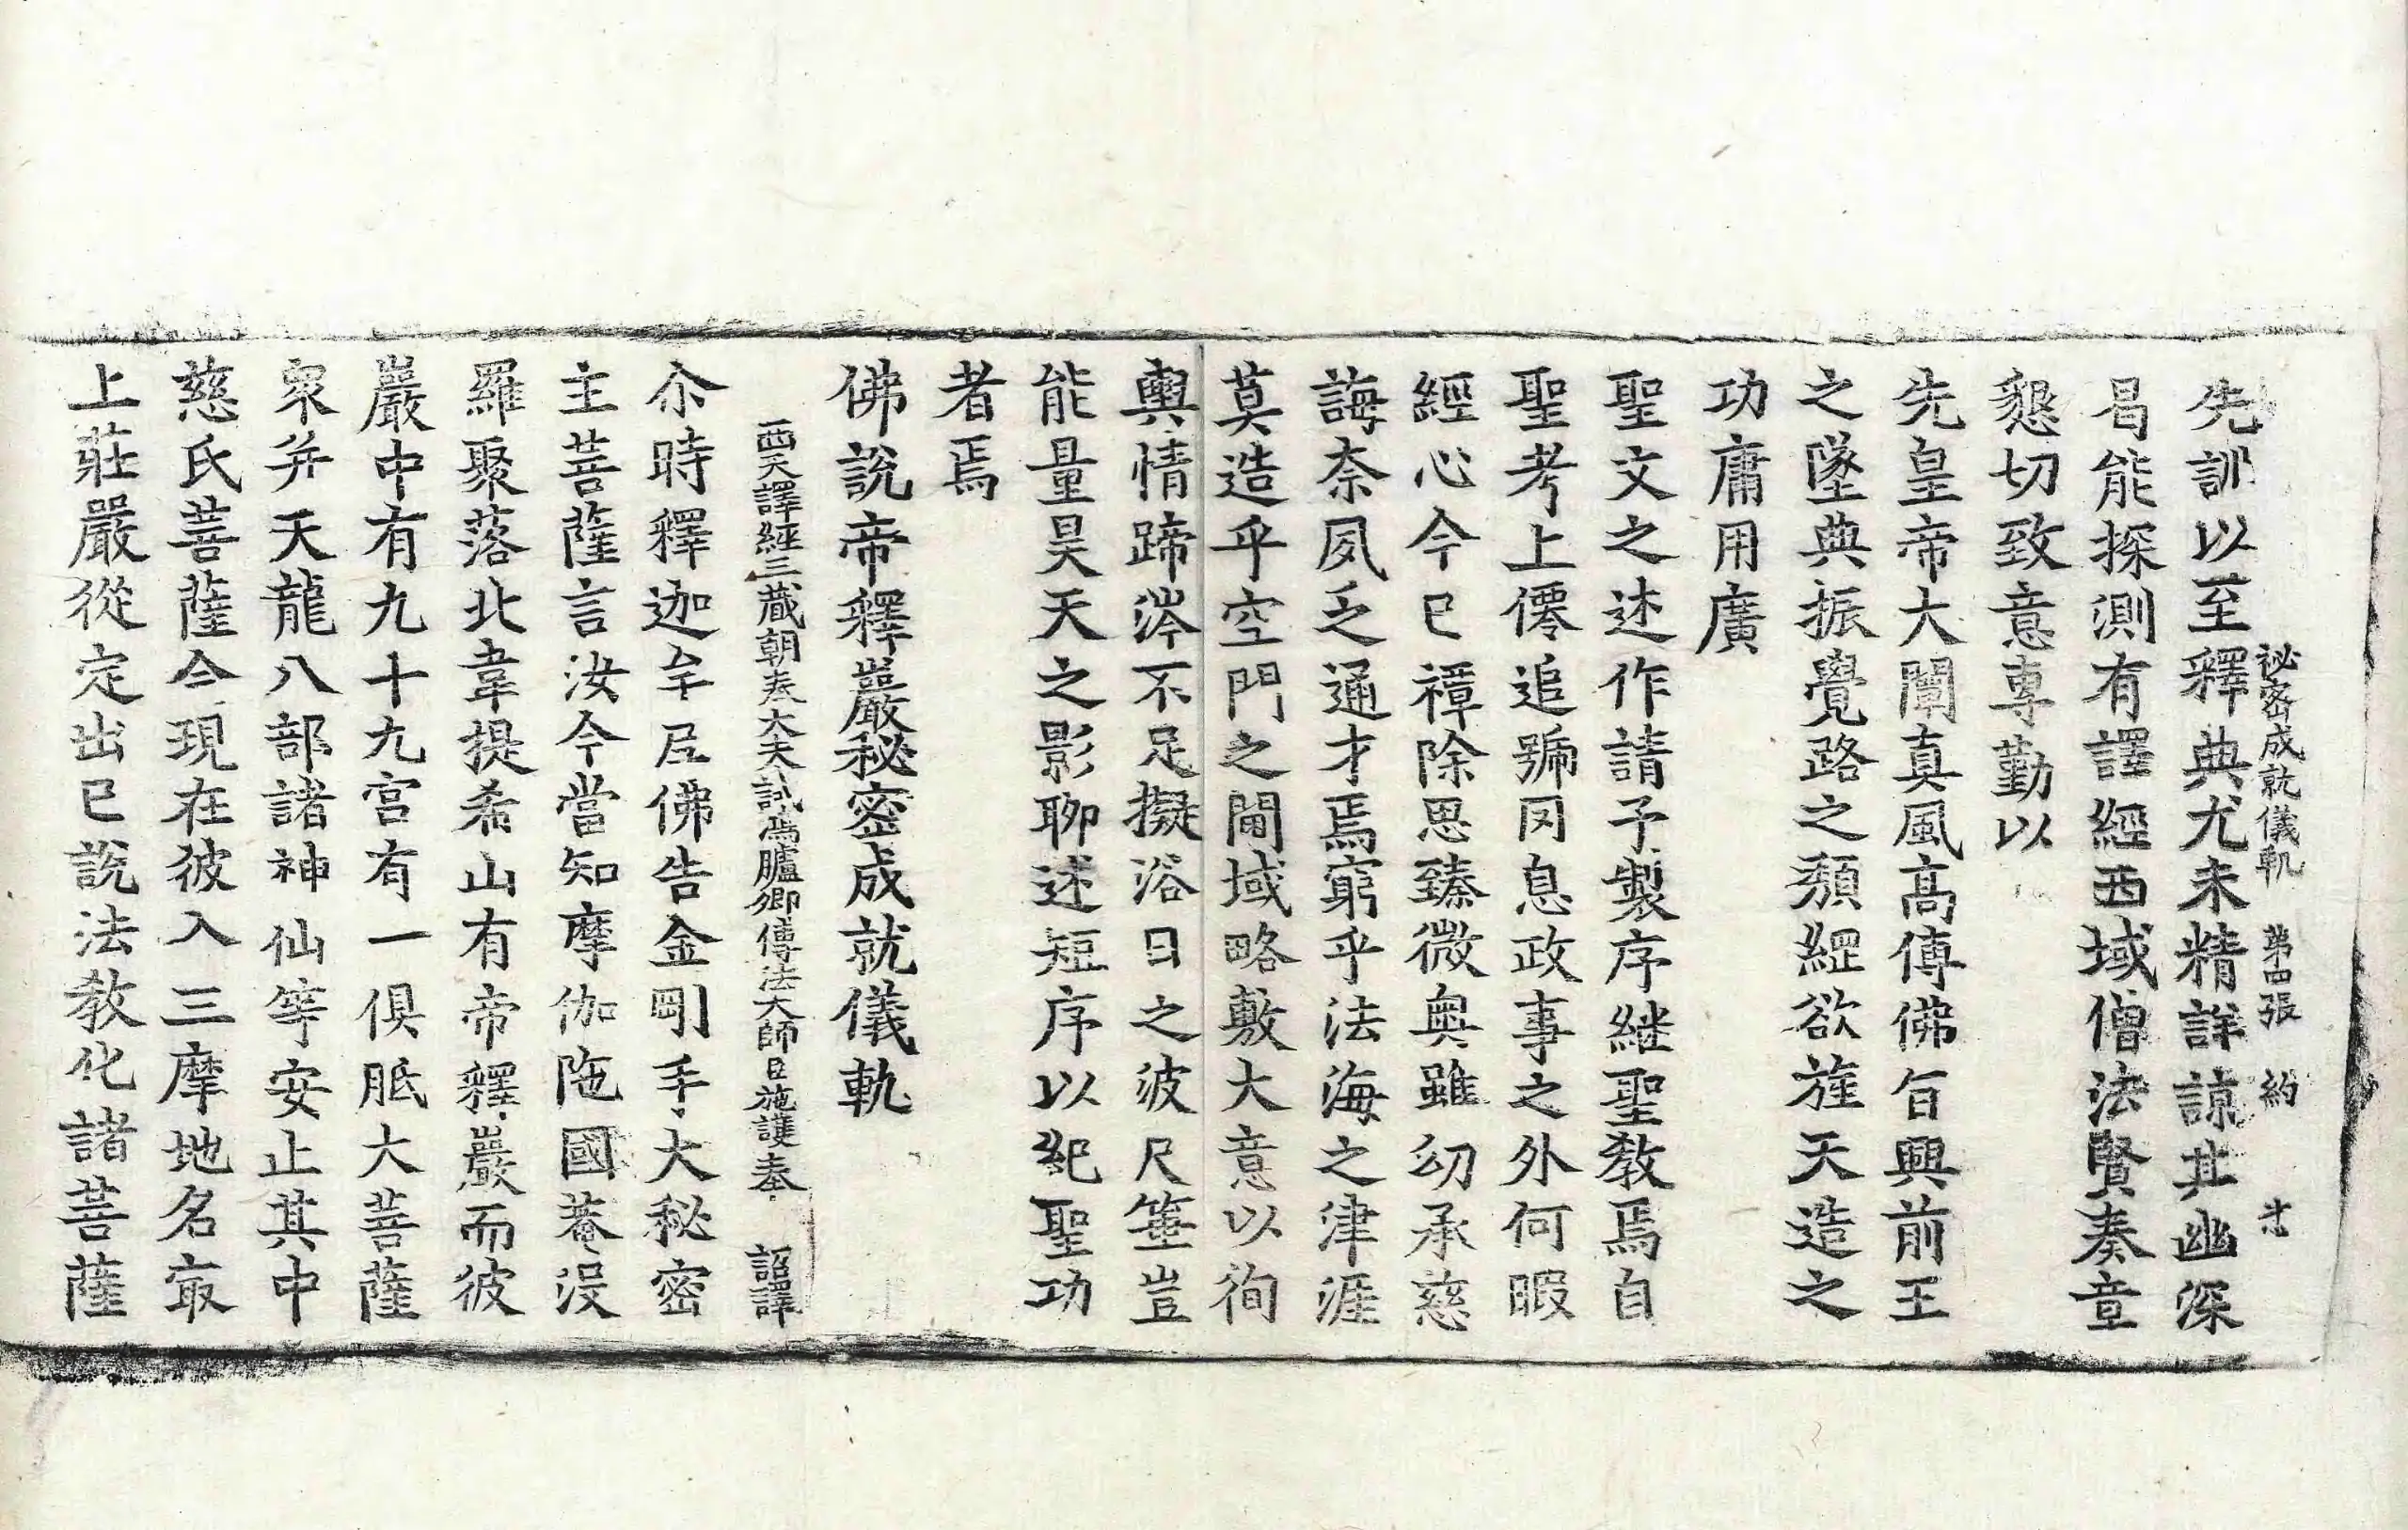 秘密成就儀軌 第四張 約
先訓以至釋典尤未精詳諒其幽深
曷能探測有譯經西域僧法賢奏章
懇切致意專勤以
先皇帝大闡真風高傳佛旨興前王
之墜典振覺路之頹綱欲旌天造之
功庸用廣
聖文之述作請予製序継聖教焉自
聖考上僊追號罔息政事之外何暇
經心今已禫除思臻微奥雖幼承慈
誨奈夙乏通才焉窮乎法海之津涯
莫造乎空門之閫域略敷大意以徇
輿情蹄涔不足擬浴日之波尺箠豈
能量昊天之影聊述短序以紀聖功
者焉
佛說帝釋巖秘密成就儀軌
西天譯經三藏朝奉大夫試鴻臚卿傳法大師臣施護奉 詔譯
尒時釋迦牟尼佛告金剛手大秘密
主菩薩言汝今當知摩伽陁國菴沒
羅聚落北韋提希山有帝釋巖而彼
巖中有九十九宮有一俱胝大菩薩
衆并天龍八部諸神仙等安止其中
慈氏菩薩今現在彼入三摩地名冣
上莊嚴從定出已說法教化諸菩薩